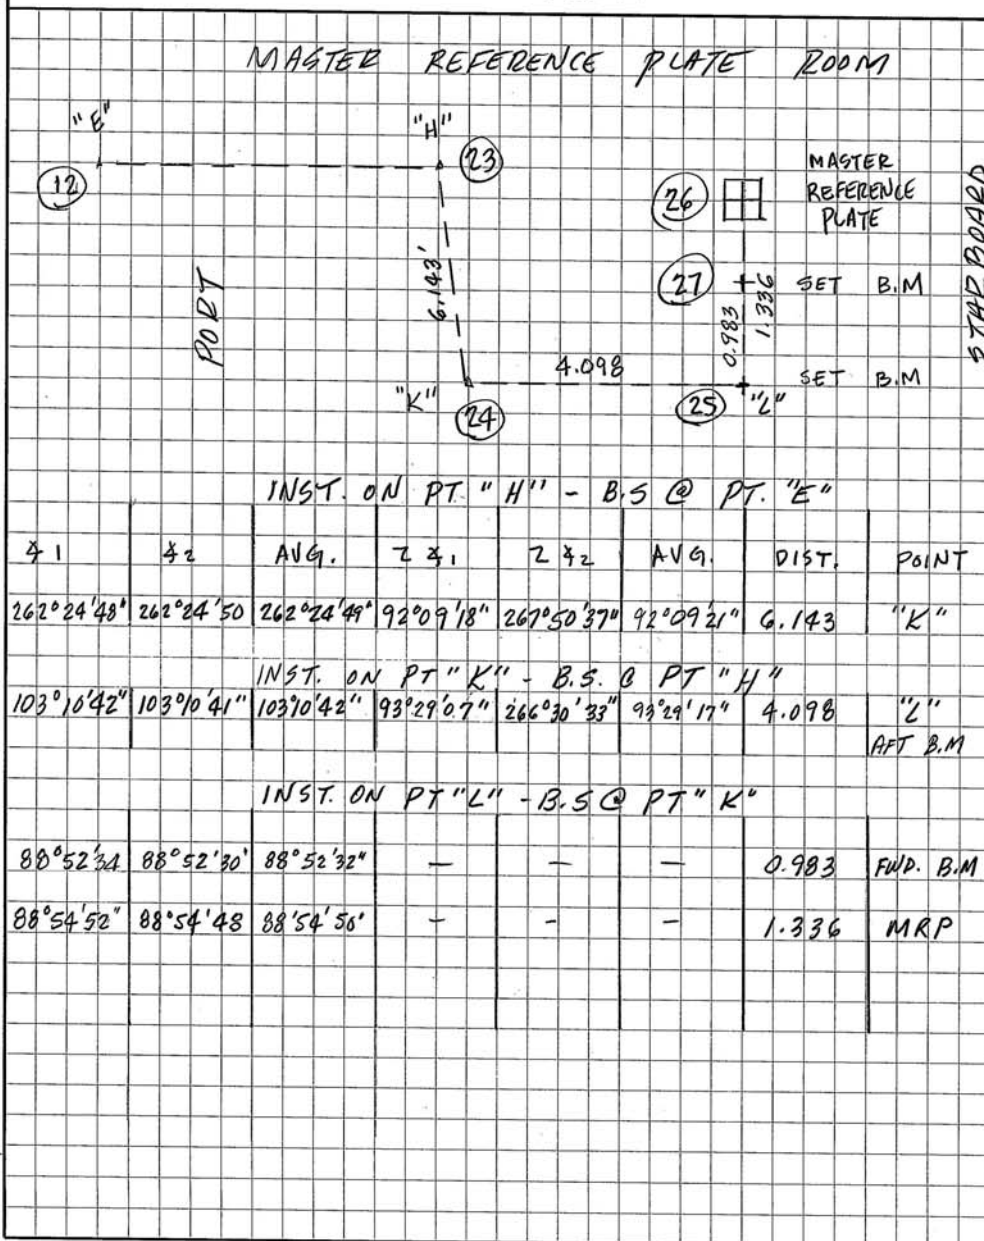 MASTER REFERENCE PLATE ROOM
"E"
"H"
12
23
26
MASTER
REFERENCE
PLATE
STARBOARD
PORT
6.143'
27
SET B.M
0.983
1.336
4.098
SET B.M
"K"
24
25
"L"
INST. ON PT. "H" - B.S @ PT. "E"
∡1 ∡2 AVG. Z ∡1 Z ∡2 AVG. DIST. POINT
262°24'48" 262°24'50 262°24'49" 92°09'18" 267°50'37" 92°09'21" 6.143 "K"
INST. ON PT "K" - B.S. @ PT "H"
103°10'42" 103°10'41" 103°10'42" 93°29'07" 266°30'33" 93°29'17" 4.098 "L"
AFT B.M
INST. ON PT "L" - B.S @ PT "K"
88°52'34 88°52'30' 88°52'32" — — — 0.983 FWD. B.M
88°54'52" 88°54'48 88'54'50' - - - 1.336 MRP